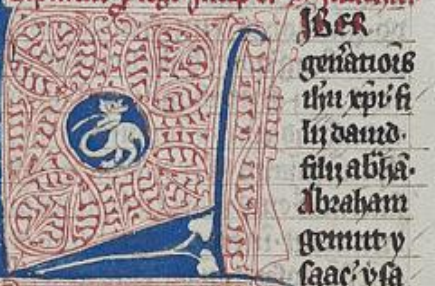 IBER
gen̄atiōis
ih̄u xp̄i fi
lii dauid·
filii abh̄ā·
Abraham
genuit y
saac· ysa